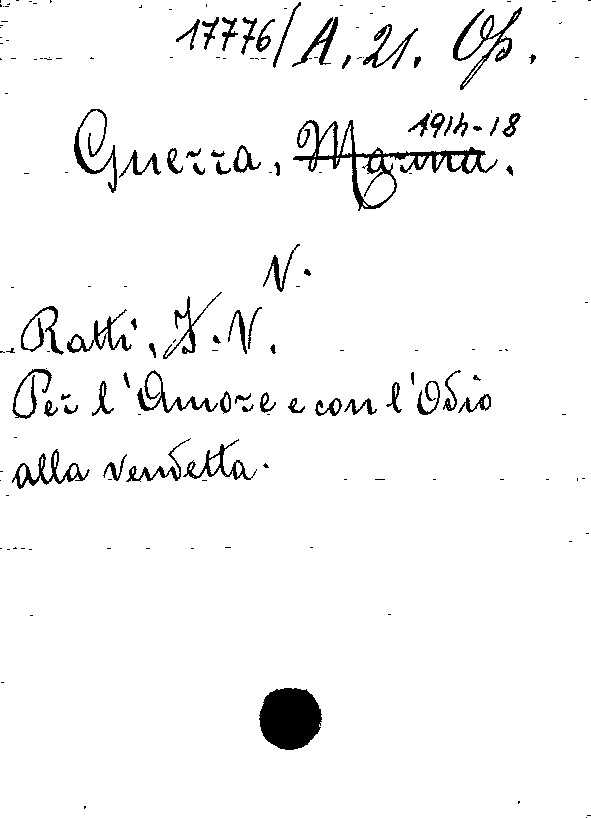 17776/A. 21. Op.
Guerra, Marina. 1914-18
N.
Ratti, F. V.
Per l'Amore e con l'Odio
alla vendetta.